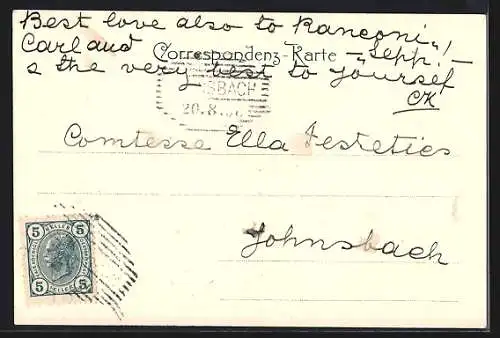 Best love also to Ranconi,
Carl and Sepp! –
& the very best to yourself
CK
Correspondenz-Karte
NSBACH
20.8.
Comtesse Ella Festetics
Johnsbach
5 HELLER 5
5 HELLER 5